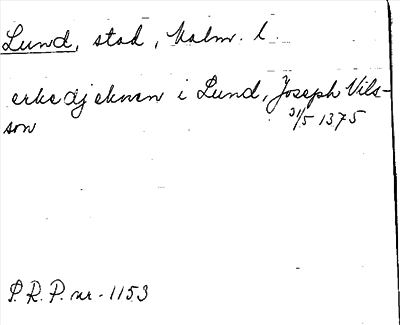 Lund, stad, Malm. l.
erkedjeknen i Lund, Joseph Nils-
son
31/5 1375
P.R.P. nr. 1153